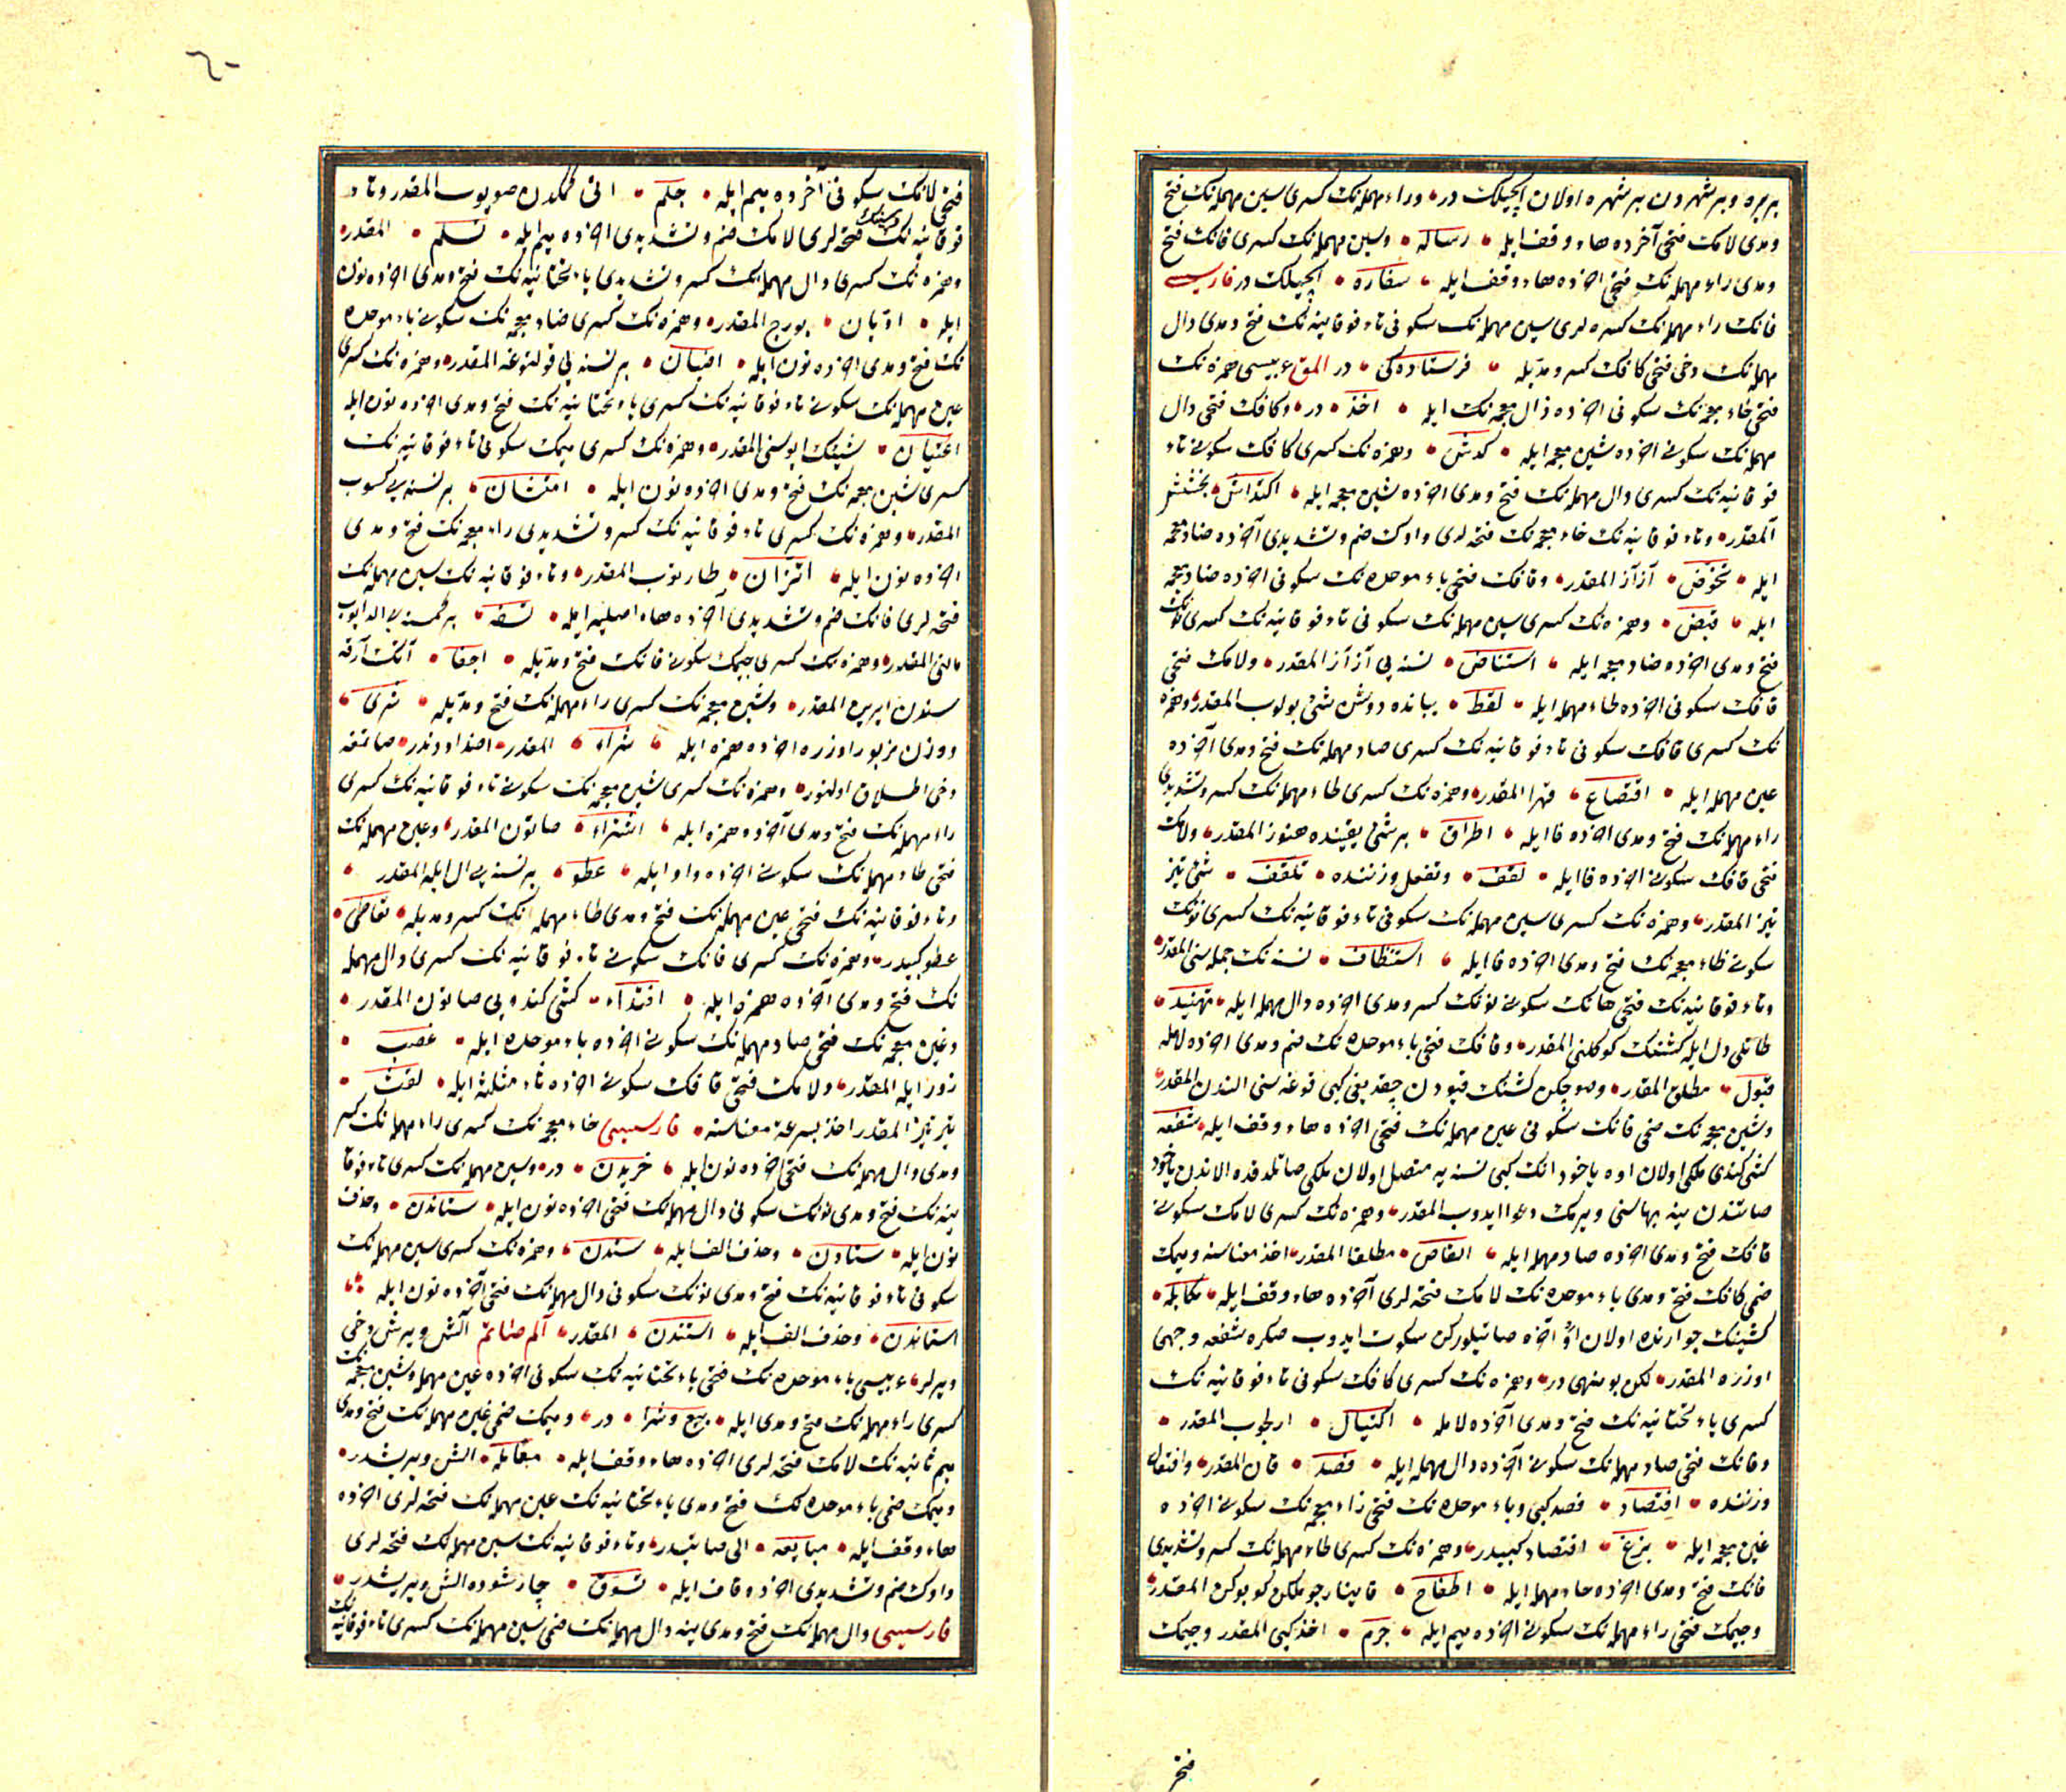 بر یره و بر شهردن بر شهره اولان ایچیلک در وراء مهمله‌نک کسری سین مهمله‌نک فتح
ومدی لامک فتحی آخرده هاء وقف ایله رساله وسین مهمله‌نک کسری فانک فتح
ومدی راء مهمله‌نک فتحی اخرده هاء وقف ایله سفاره ایچیلک در فارسیسی
فانک راء مهمله‌نک کسره‌لری سین مهمله‌نک سکونی تاء فوقانیه‌نک فتح ومدی دال
مهمله‌نک دخی فتحی کافک کسر ومدیله فرستاده‌کی در المق عربیسی همزه‌نک
فتحی خاء معجمه‌نک سکونی اخرده ذال معجمه‌نک ایله اخذ در وکافک فتحی دال
مهمله‌نک سکونی اخرده شین معجمه ایله کدش وهمزه‌نک کسری کافک سکونی تاء
فوقانیه‌نک کسری دال مهمله‌نک فتح ومدی اخرده شین معجمه ایله اکتداش بخشش
المقدر وتاء فوقانیه‌نک خاء معجمه‌نک فتحه‌لری واوک ضم وتشدیدی آخرده ضاد معجمه
ایله تخوض آز آز المقدر وقافک فتحی باء موحده‌نک سکونی اخرده ضاد معجمه
ایله قبض وهمزه‌نک کسری سین مهمله‌نک سکونی تاء فوقانیه‌نک کسری نونک
فتح ومدی اخرده ضاد معجمه ایله استناض نسنه‌یی آز آز المقدر ولامک فتحی
قافک سکونی اخرده طاء مهمله ایله لقط یبانده دوشن شئ بولوب المقدر وهمزه
نک کسری قافک سکونی تاء فوقانیه‌نک کسری صاد مهمله‌نک فتح ومدی آخرده
عین مهمله ایله اقتصاع قهرا المقدر وهمزه‌نک کسری طاء مهمله‌نک کسر وتشدیدی
راء مهمله‌نک فتح ومدی اخرده فا ایله اطراف بر شئ یقینده هنوز المقدر ولامک
فتحی قافک سکونی اخرده فا ایله لقف وتفعل وزننده تلقف شئ تیز
تیز المقدر وهمزه‌نک کسری سین مهمله‌نک سکونی تاء فوقانیه‌نک کسری نونک
سکونی ظاء معجمه‌نک فتح ومدی اخرده فا ایله استنظاف نسنه‌نک جمله‌سنی المقدر
وتاء فوقانیه‌نک فتحی هانک سکونی نونک کسر ومدی اخرده دال مهمله ایله تهنید
طاتلی دل ایله کشینک کوکلنی المقدر وقافک فتحی باء موحده‌نک ضم ومدی اخرده لامله
قبول مطلق المقدر
وشین معجمه‌نک ضمی فانک سکونی عین مهمله‌نک فتحی اخرده هاء وقف ایله شفعه
کشی کندی ملکی اولان اوه یاخود انک کبی نسنه‌یه متصل اولان ملکی صاتلدقده الاندن یاخود
صاتندن ینه بهاسنی ویرمک دعوا ایدوب المقدر وهمزه‌نک کسری لامک سکونی
قافک فتح ومدی اخرده صاد مهمله ایله القاص مطلقا المقدر اخذ معناسنه ومیمک
ضمی کافک فتح ومدی باء موحده‌نک لامک فتحه‌لری آخرده هاء وقف ایله مکابله
کشینک جوارنده اولان او آخره صاتیلورکن سکوت ایدوب صکره شفعه وجهی
اوزره المقدر لکن بو منهی در وهمزه‌نک کسری کافک سکونی تاء فوقانیه‌نک
کسری یاء تحتانیه‌نک فتح ومدی آخرده لامله اکتیال المقدر
وفانک فتحی صاد مهمله‌نک سکونی آخرده دال مهمله ایله فصد قان المقدر وافتعال
وزننده افتصاد فصد کبی وباء موحده‌نک فتحی زاء معجمه‌نک سکونی اخرده
غین معجمه ایله بزغ افتصاد کبیدر وهمزه‌نک کسری طاء مهمله‌نک کسر وتشدیدی
فانک فتح ومدی اخرده حاء مهمله ایله اطفاح قاینار چوملکن کوپوکن المقدر
وجیمک فتحی راء مهمله‌نک سکونی اخرده میم ایله جرم اخذ کبی المقدر وجیمک
فتحی
٦٠
فتحی لامک سکونی آخرده میم ایله جلم اتی کمکدن صویوب المقدر وتاء
فوقانیه‌نک سینک فتحه‌لری لامک ضم وتشدیدی اخرده میم ایله تسلم المقدر
وهمزه‌نک کسری دال مهمله‌نک کسر وتشدیدی یاء تحتانیه‌نک فتح ومدی اخرده نون
ایله ادیان بورج المقدر وهمزه‌نک کسری ضاد معجمه‌نک سکونی باء موحده
نک فتح ومدی اخرده نون ایله اضبان بر نسنه‌یی قولتوغنه المقدر وهمزه‌نک کسری
عین مهمله‌نک سکونی تاء فوقانیه‌نک کسری یاء تحتانیه‌نک فتح ومدی اخرده نون ایله
اعتیان شیئک ایوسنی المقدر وهمزه‌نک کسری میمک سکونی تاء فوقانیه‌نک
کسری شین معجمه‌نک فتح ومدی اخرده نون ایله امتشان بر نسنه‌یی کسوب
المقدر وهمزه‌نک کسری تاء فوقانیه‌نک کسر وتشدیدی زاء معجمه‌نک فتح ومدی
اخرده نون ایله اتزان طارتوب المقدر وتاء فوقانیه‌نک سین مهمله‌نک
فتحه‌لری فانک ضم وتشدیدی اخرده هاء اصلیه ایله تسفه بر کمسنه‌یی الدایوب
مالنی المقدر وهمزه‌نک کسری جیمک سکونی فانک فتح ومدیله اجفا آتک آرقه
سندن ایرین المقدر وشین معجمه‌نک کسری راء مهمله‌نک فتح ومدیله شری
ووزن مزبور اوزره اخرده همزه ایله شراء المقدر اضداددندر صاتمغه
دخی اطلاق اولنور وهمزه‌نک کسری شین معجمه‌نک سکونی تاء فوقانیه‌نک کسری
راء مهمله‌نک فتح ومدی آخرده همزه ایله اشتراء صاتون المقدر وعین مهمله‌نک
فتحی طاء مهمله‌نک سکونی اخرده واو ایله عطو بر نسنه‌یی ال ایله المقدر
وتاء فوقانیه‌نک فتحی عین مهمله‌نک فتح ومدی طاء مهمله‌نک کسر ومدیله تعاطی
عطو کبیدر وهمزه‌نک کسری فانک سکونی تاء فوقانیه‌نک کسری دال مهمله
نک فتح ومدی آخرده همزه ایله افتداء کشی کندویی صاتون المقدر
وغین معجمه‌نک فتحی صاد مهمله‌نک سکونی اخرده باء موحده ایله غصب
زور ایله المقدر ولامک فتحی قافک سکونی اخرده ثاء مثلثه ایله لقث
تیز تیز المقدر اخذ بسرعة معناسنه فارسیسی خاء معجمه‌نک کسری راء مهمله‌نک کسر
ومدی دال مهمله‌نک فتحی اخرده نون ایله خریدن در وسین مهمله‌نک کسری تاء فوقا
نیه‌نک فتح ومدی نونک سکونی دال مهمله‌نک فتحی اخرده نون ایله ستاندن وحذف
نون ایله ستادن وحذف الف ایله ستدن وهمزه‌نک کسری سین مهمله‌نک
سکونی تاء فوقانیه‌نک فتح ومدی نونک سکونی دال مهمله‌نک فتحی آخرده نون ایله
استاندن وحذف الف ایله استندن المقدر الم صاتم آلش ویرش دخی
دیرلر عربیسی باء موحده‌نک فتحی یاء تحتانیه‌نک سکونی اخرده عین مهمله وشین معجمه‌نک
کسری راء مهمله‌نک فتح ومدی ایله بیع وشرا در ومیمک ضمی عین مهمله‌نک فتح ومدی
میم ثانیه‌نک لامک فتحه‌لری اخرده هاء وقف ایله معامله الش ویریشدر
ومیمک ضمی باء موحده‌نک فتح ومدی یاء تحتانیه‌نک عین مهمله‌نک فتحه‌لری اخرده
هاء وقف ایله مبایعه الی صاتیدر وتاء فوقانیه‌نک سین مهمله‌نک فتحه‌لری
واوک ضم وتشدیدی اخرده قاف ایله تسوق چارشوده الش ویریشدر
فارسیسی دال مهمله‌نک فتح ومدی ینه دال مهمله‌نک ضمی سین مهمله‌نک کسری تاء فوقانیه‌نک